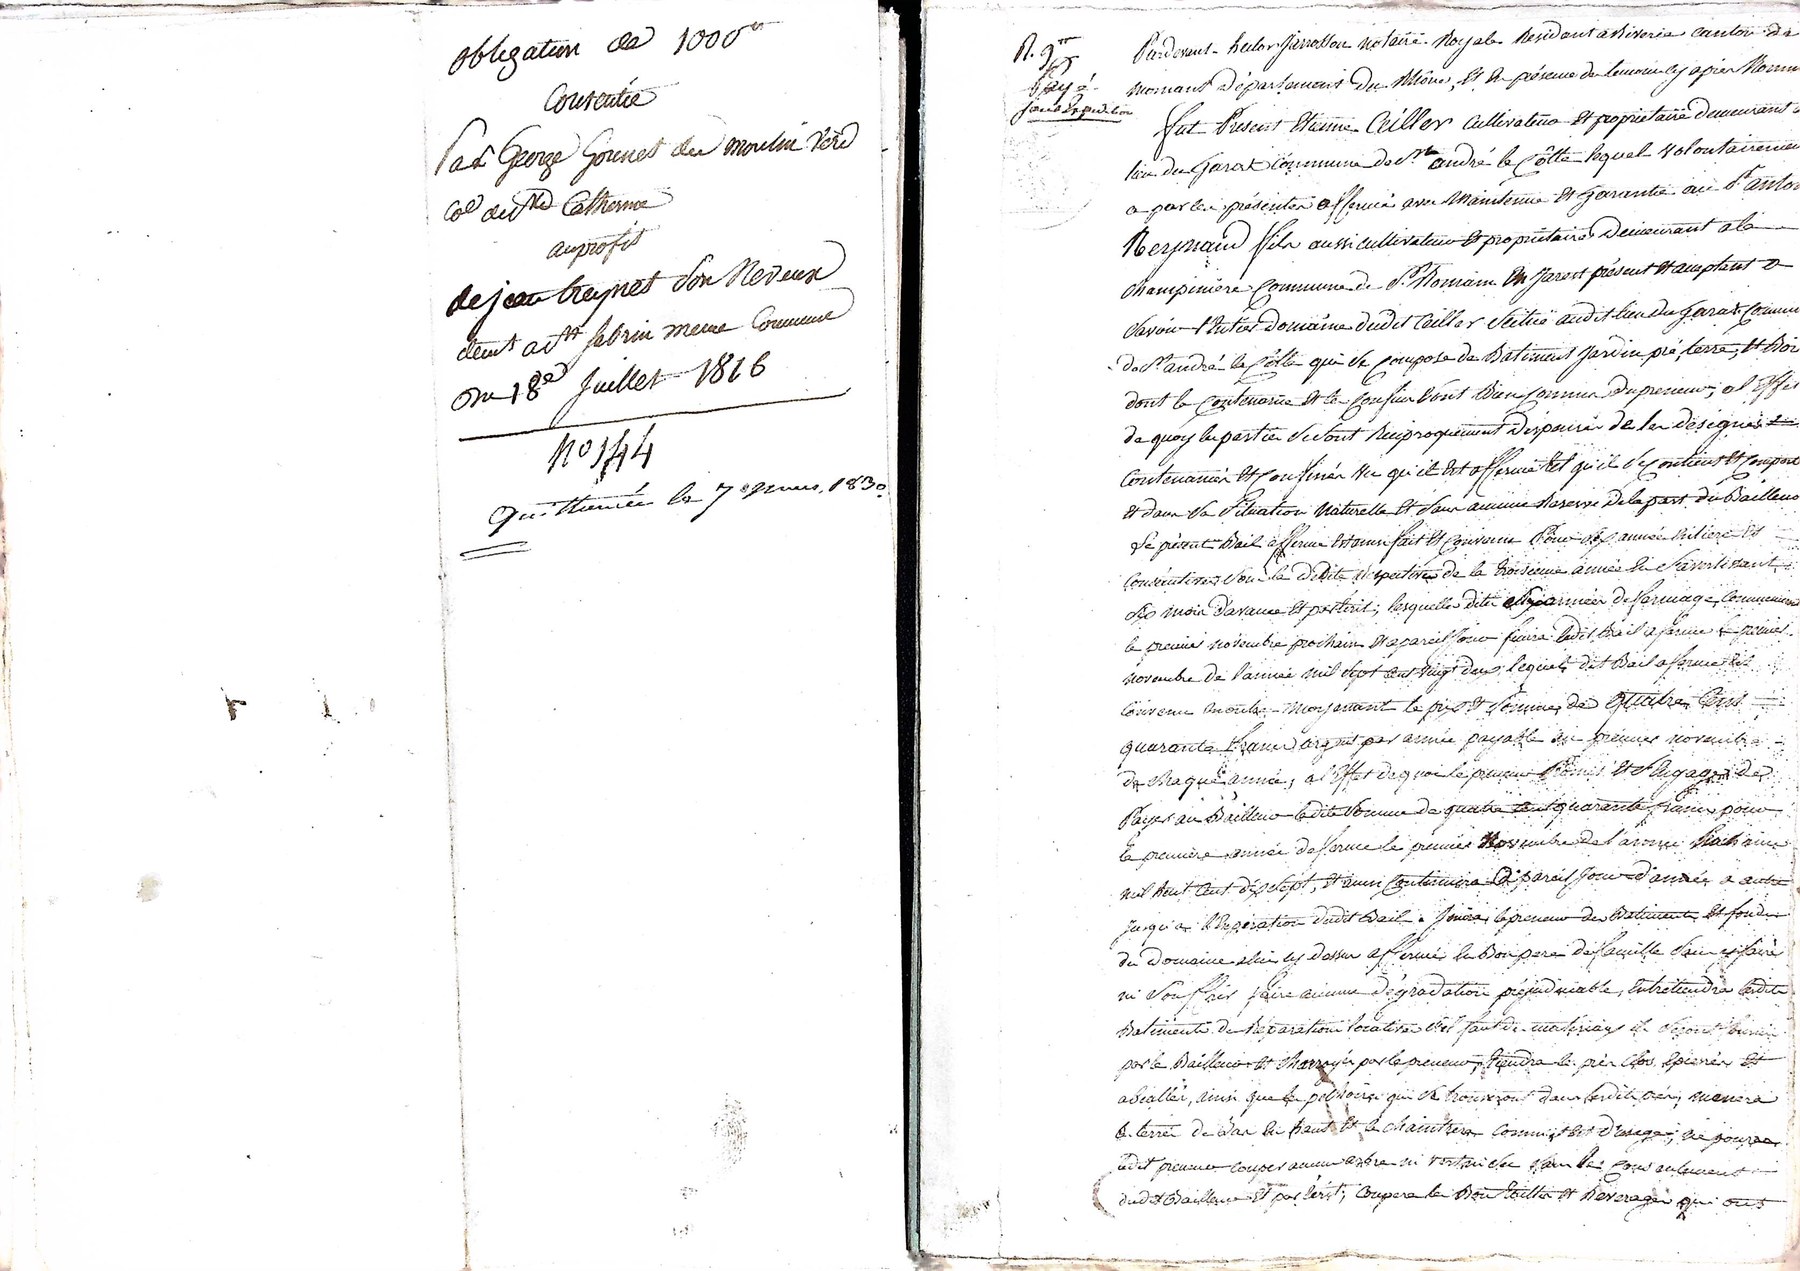 obligation de 1000 fr
Consentie
Par George Gounet du moulin Verd
Co[e] de S[te] Catherine
au profit
de jean Creynet Son Neveux
dem[t] a S[t] Sabrin meme Commune
Du 18[e] Juillet 1816
N[o] 144
Quittancée le 7 mars 1830
R. 9[fr]
Payé
sans Expedition
Pardevant hector Jarrosson notaire Royale Residant a Riverie canton de
mornant département du Rhône, et en présence de temoins cy apres Nommés
fut Present Etienne Cellier Cultivateur et proprietaire demeurant au
lieu du Garat Commune de S[t] andré la Côtte lequel volontairement
a par les présentes affermé avec Maintenue et Garantie au S[r] antoine
Reynaud fils aussi cultivateur et proprietaire demeurant a la
champinière Commune de S[t] Romain en Jarest présent et acceptant
Savoir l'Entier domaine dudit Cellier Scitué audit lieu du Garat Commune
de S[t] andré la Côtte qui se compose de Batiment Jardin pré, terre, et Bois
dont la Contenance et le Confin sont Bien Connu du preneur, a l'Effet
de quoy les parties se sont Reciproquement dispensé de les désigner
Contenances et Confins vu qu'il est affermé tel qu'il se Contient et Comporte
et dans sa Situation naturelle et sans aucune Reserve de la part du Bailleur
Le présent Bail a ferme est ainsi fait et Convenu Pour six année entiere et
Consécutives sous la Dédite respective de la troisieme année en S'avertissant
six mois d'avance et par écrit, lesquelles dites six années de fermage Commenceront
le premier novembre prochain et a pareil Jour finira ledit Bail a ferme le premier
novembre de l'année mil sept cent vingt deux lequel dit Bail a ferme est
Convenu moyenant le prix et Somme de Quatre Cent
quarante francs argent par année payable au premier novembre
de chaque année, a l'Effet de quoi le preneur Promet et s'Engage de
Payer au Bailleur ladite Somme de quatre cent quarante francs pour
la première année de ferme le premier Novembre de l'année Prochaine
mil huit Cent dix sept, et ainsi Continuera a pareil Jour d'année a autre
jusqu'a l'Expiration dudit Bail. Jouira le preneur des Batiments et fonds
du Domaine cy dessus affermé en Bon pere de famille sans y faire
ni Souffrir faire aucune dégradation préjudiciable, Entretiendra lesdits
Batiments de Réparation locative
par le Bailleur et Charroyés par le preneur, tiendra les prés Clos, Epierrés et
ainsi que les qui se trouveront dans lesdits prés, menera
les terres de Bas en haut et les chaintres comme il est d'usage, ne pourra
ledit preneur couper aucun arbre ni sans les consentement
dudit Bailleur et par écrit, Coupera les Bois taillis et qui ont